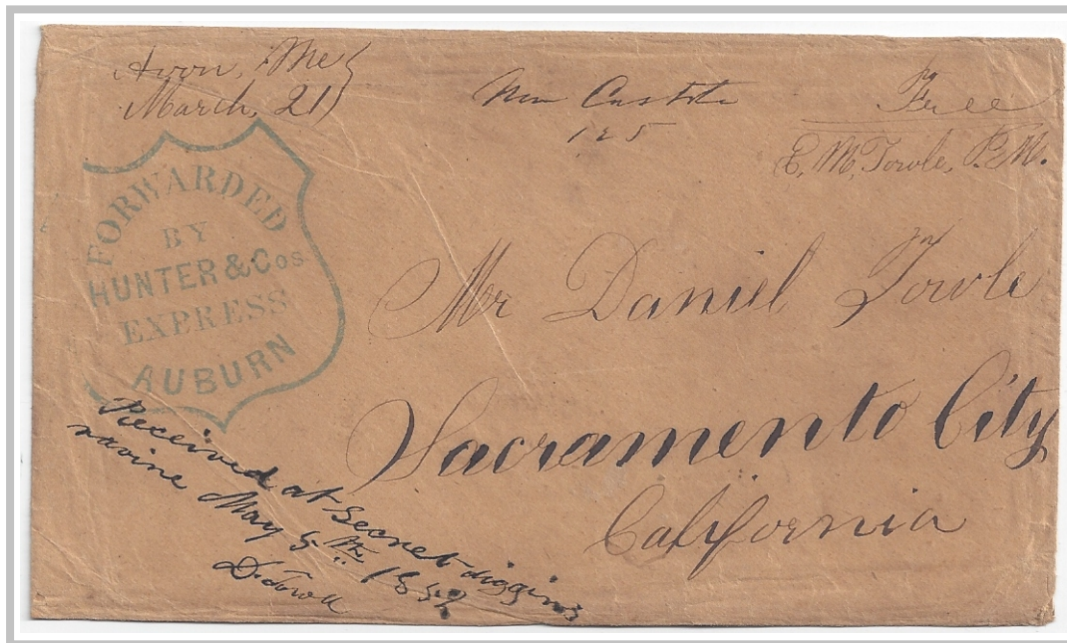 Avon, Me
March, 21
New Castle
125
Free
E. M. Towle, P.M.
FORWARDED
BY
HUNTER & Cos
EXPRESS
AUBURN
Mr Daniel Towle
Sacramento City
California
Received at Secret diggins
ravine May 5th 1852
D. Towle